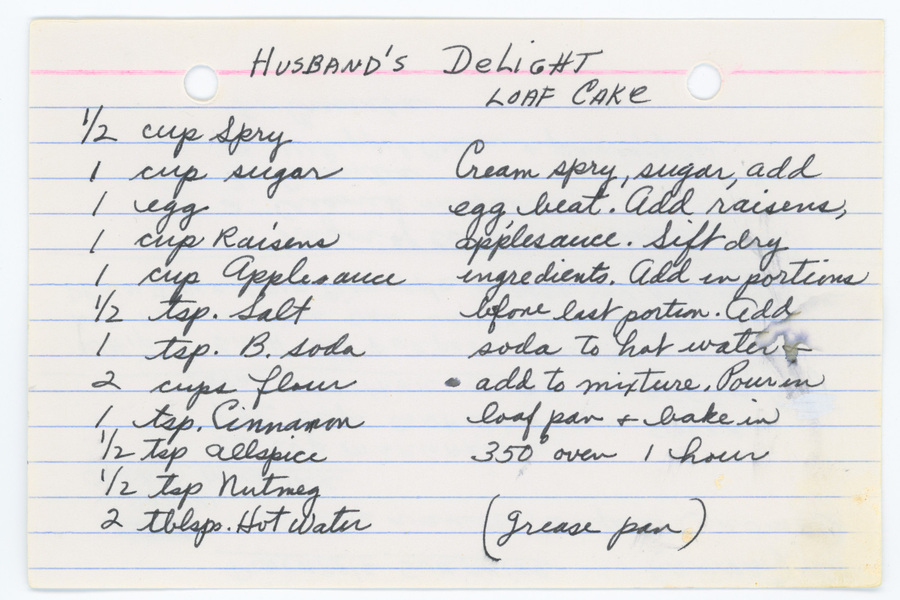 HUSBAND'S DELIGHT
LOAF CAKE
1/2 cup Spry
1 cup sugar
1 egg
1 cup Raisens
1 cup Applesauce
1/2 tsp. Salt
1 tsp. B. soda
2 cups flour
1 tsp. Cinnamon
1/2 tsp allspice
1/2 tsp Nutmeg
2 tblsps. Hot Water
Cream spry, sugar, add
egg, beat. Add raisens,
applesauce. Sift dry
ingredients. Add in portions
before last portion. Add
soda to hot water +
add to mixture. Pour in
loaf pan + bake in
350° oven 1 hour
(grease pan)